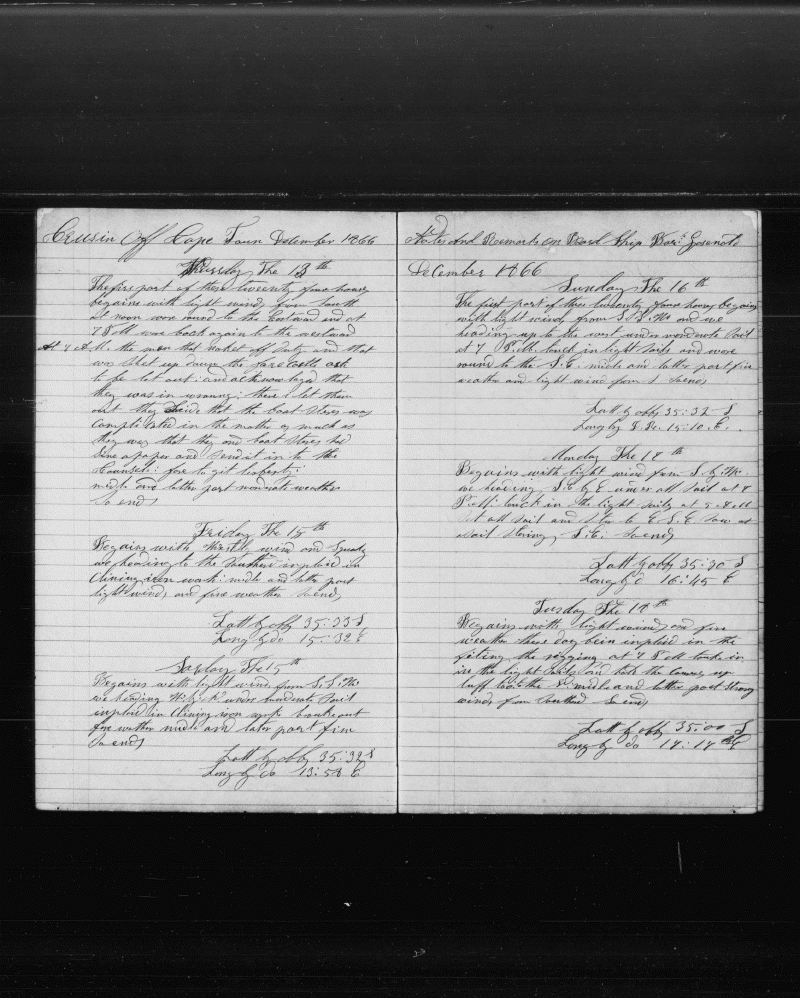 Crusin Off Cape Town December 1866
Thursday The 13th
The first part of these twenty four hours
begains with light winds from South
at noon wore round to the Eastward and at
7 P.M. wore back again to the westward
At 4 A.M. the men that
was shut up down the fore Castle ask
to be let out and acknowleged that
they was in wrong: there i let them
out they that the boat Steres was
complicated in the matter as much as
they was that they and boat Steres had
a paper and send it in to the
Counsel: fore to git
midle and latter part moderate weather
So ends
Friday The 15th
Begains with wind and Squaly
we heading to the Southard inploid in
Clining iron work: midle and latter part
light winds and fine weather So ends
Latt by obby 35:33 S
Long by do 15:32 E
The 15th
Begains with light winds from S.S.W.
we heading W. by N. under moderate Sail
inploid in Clining iron work
fine wether midle and later part firm
So ends
Latt by obby 35:32 S
Long by do 13:58 E
Notes And Remarks on Board Ship
December 1866
Sunday The 16th
The first part of these twenty four hours begains
with light winds from S.S.W. and we
heading up to the west under moderate Sail
at 7 P.M. took in light Sails and wore
round to the S.E. midle and latter part fine
weather and light wind from S So ends
Latt by obby 35:32 S
Long by 15:10 E.
Monday The 18th
Begains with light wind from S. by W.
we heading S.E. by E under all Sail at 7
P.M. took in the light Sails at 5 A.M.
Set all Sail and to E.S.E. Saw a
Sail Stering S.E. So ends
Latt by obby 35:30 S
Long by do 16:45 E
Tuesday The 19th
Begains with light winds and fine
weather these day been inploid in the
fiting the rigging at 7 P.M. took in
in the light Sails and
luff to the midle and latter part Strong
winds from Southard So ends
Latt by obby 35:00 S
Long by do 17:17 E